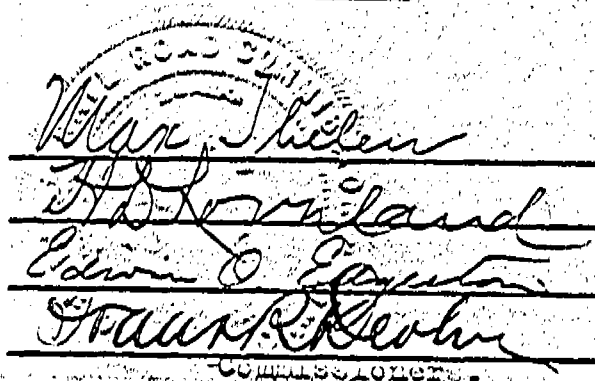 RAIL ROAD COMM
Max Thelen
H. D. Loveland
Edwin O. Edgerton
Frank R. Devlin
Commissioners.